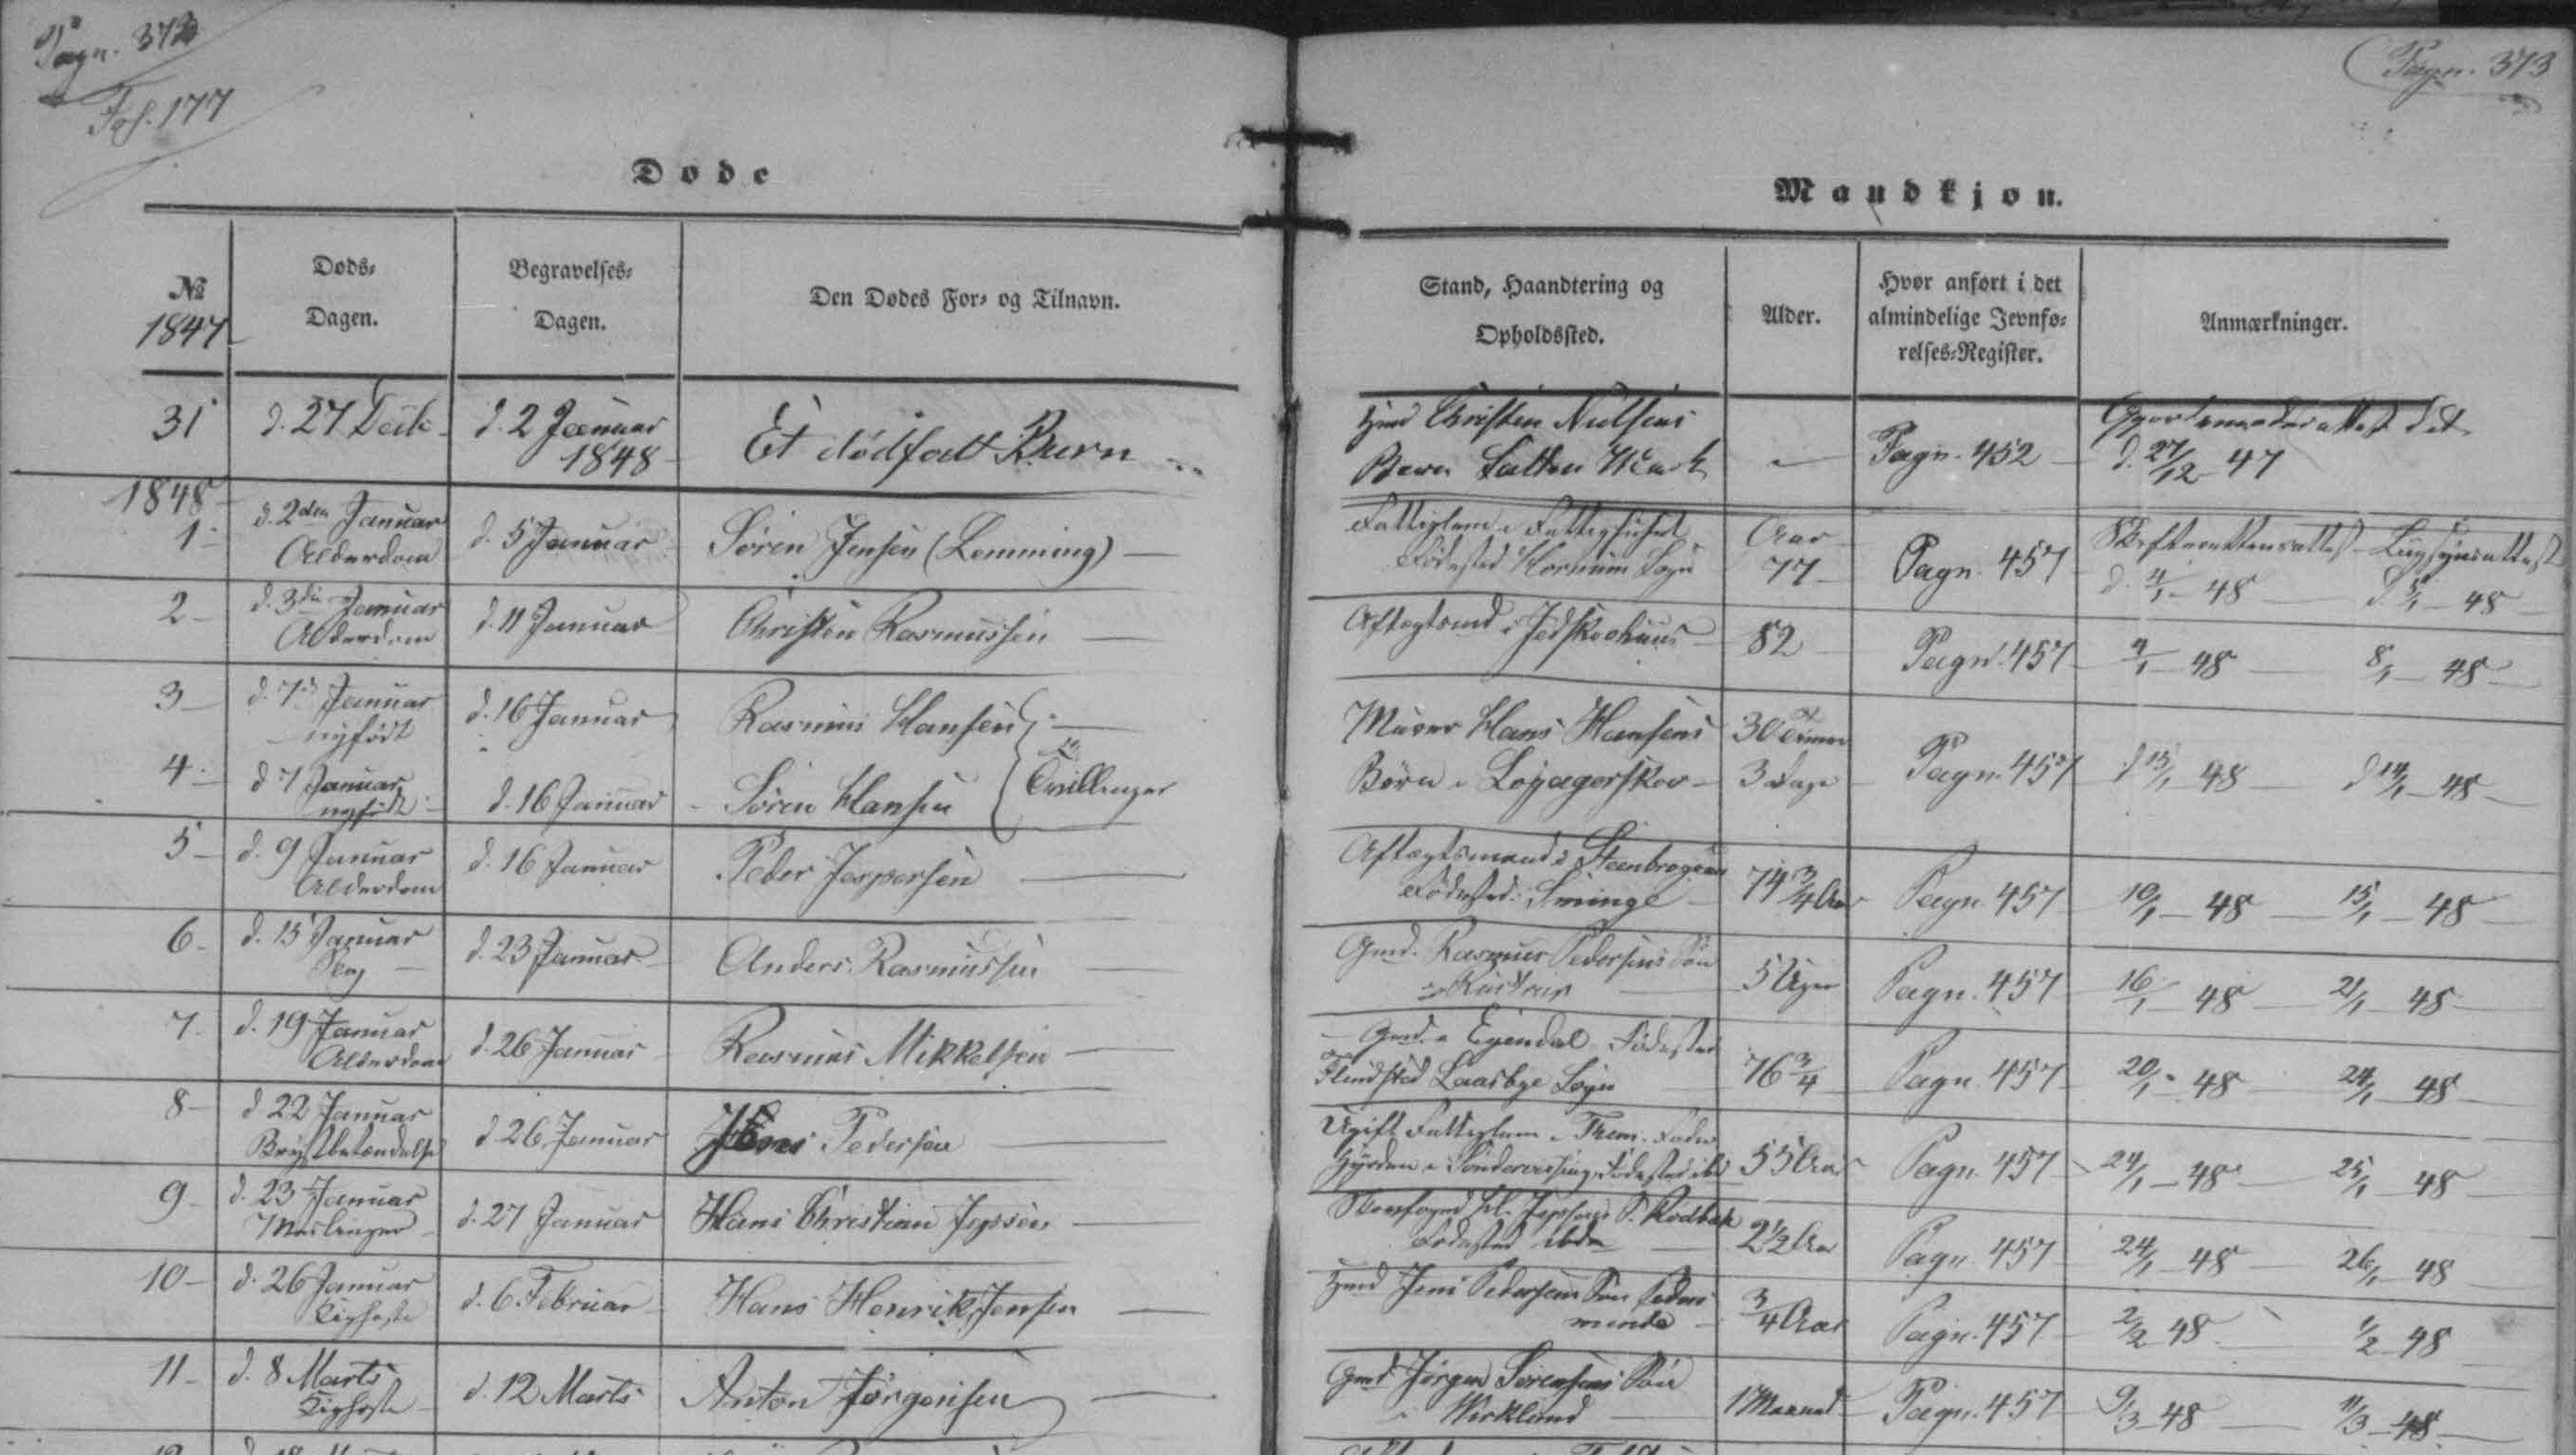 Pagn. 372
Fol. 177
Døde
№
1847
Døds-
Dagen.
Begravelses-
Dagen.
Den Dødes For- og Tilnavn.
31
d. 27 Decb.
d. 2 Januar
1848
Et dødfødt Barn
1848
1
d. 2den Januar
Alderdom
d. 5 Januar
Søren Jensen (Lemming)
2
d. 3die Januar
Alderdom
d. 11 Januar
Christen Rasmussen
3
d. 7de Januar
nyfødt
d. 16 Januar
Rasmus Hansen
4
d 7 Januar
nyfødt
d. 16 Januar
Søren Hansen
Tvillinger
5
d. 9 Januar
Alderdom
d. 16 Januar
Peder Jespersen
6
d. 15 Januar
d. 23 Januar
Anders Rasmussen
7
d. 19 Januar
Alderdom
d. 26 Januar
Rasmus Mikkelsen
8
d 22 Januar
Brystbetændelse
d 26 Januar
Jens Pedersen
9
d. 23 Januar
Mæslinger
d. 27 Januar
Hans Christian Jepsen
10
d. 26 Januar
Kighoste
d. 6 Februar
Hans Henrik Jensen
11
d. 8 Marts
Kighoste
d. 12 Marts
Anton Jørgensen
Pagn. 373
Mandkjøn.
Stand, Haandtering og
Opholdssted.
Alder.
Hvor anført i det
almindelige Jevnfø-
relses-Register.
Anmærkninger.
Hmd Christen Nielsens
Barn Salten Mark
Pagn. 452
d. 27/12 47
Fattiglem i Fattighuset
Fødested Hornum Sogn
Aar
77
Pagn. 457
Skifteretsattest Liigsynsattest
d. 4/1 48
d. 5/1 48
Aftægtsmd i
82
Pagn. 457
4/1 48
8/1 48
Murer Hans Hansens
Børn i Løgagerskov
30 Timer
3 Dage
Pagn. 457
d 13/1 48
d 14/1 48
Aftægtsmand i
Fødested: Sminge
74 3/4 Aar
Pagn. 457
10/1 48
15/1 48
Gmd. Rasmus Pedersens Søn
i Rustrup
5 Uger
Pagn. 457
16/1 48
21/1 48
Gmd. i Egendal Fødested
Flindsted Laasbye Sogn
76 3/4
Pagn. 457
20/1 48
24/1 48
Ugift Fattiglem i Them. Fader
Hyrden i Sindervissing. Fødested ibd
55 Aar
Pagn. 457
24/1 48
25/1 48
Skovfoged Jepsens S. Rodbæk
Fødested ibd
2 1/2 Aar
Pagn. 457
24/1 48
26/1 48
Hmd Jens Pedersens Søn
3/4 Aar
Pagn. 457
2/2 48
1/2 48
Gmd Jørgen Sørensens Søn
i Virklund
1 Maaned
Pagn. 457
9/3 48
11/3 48